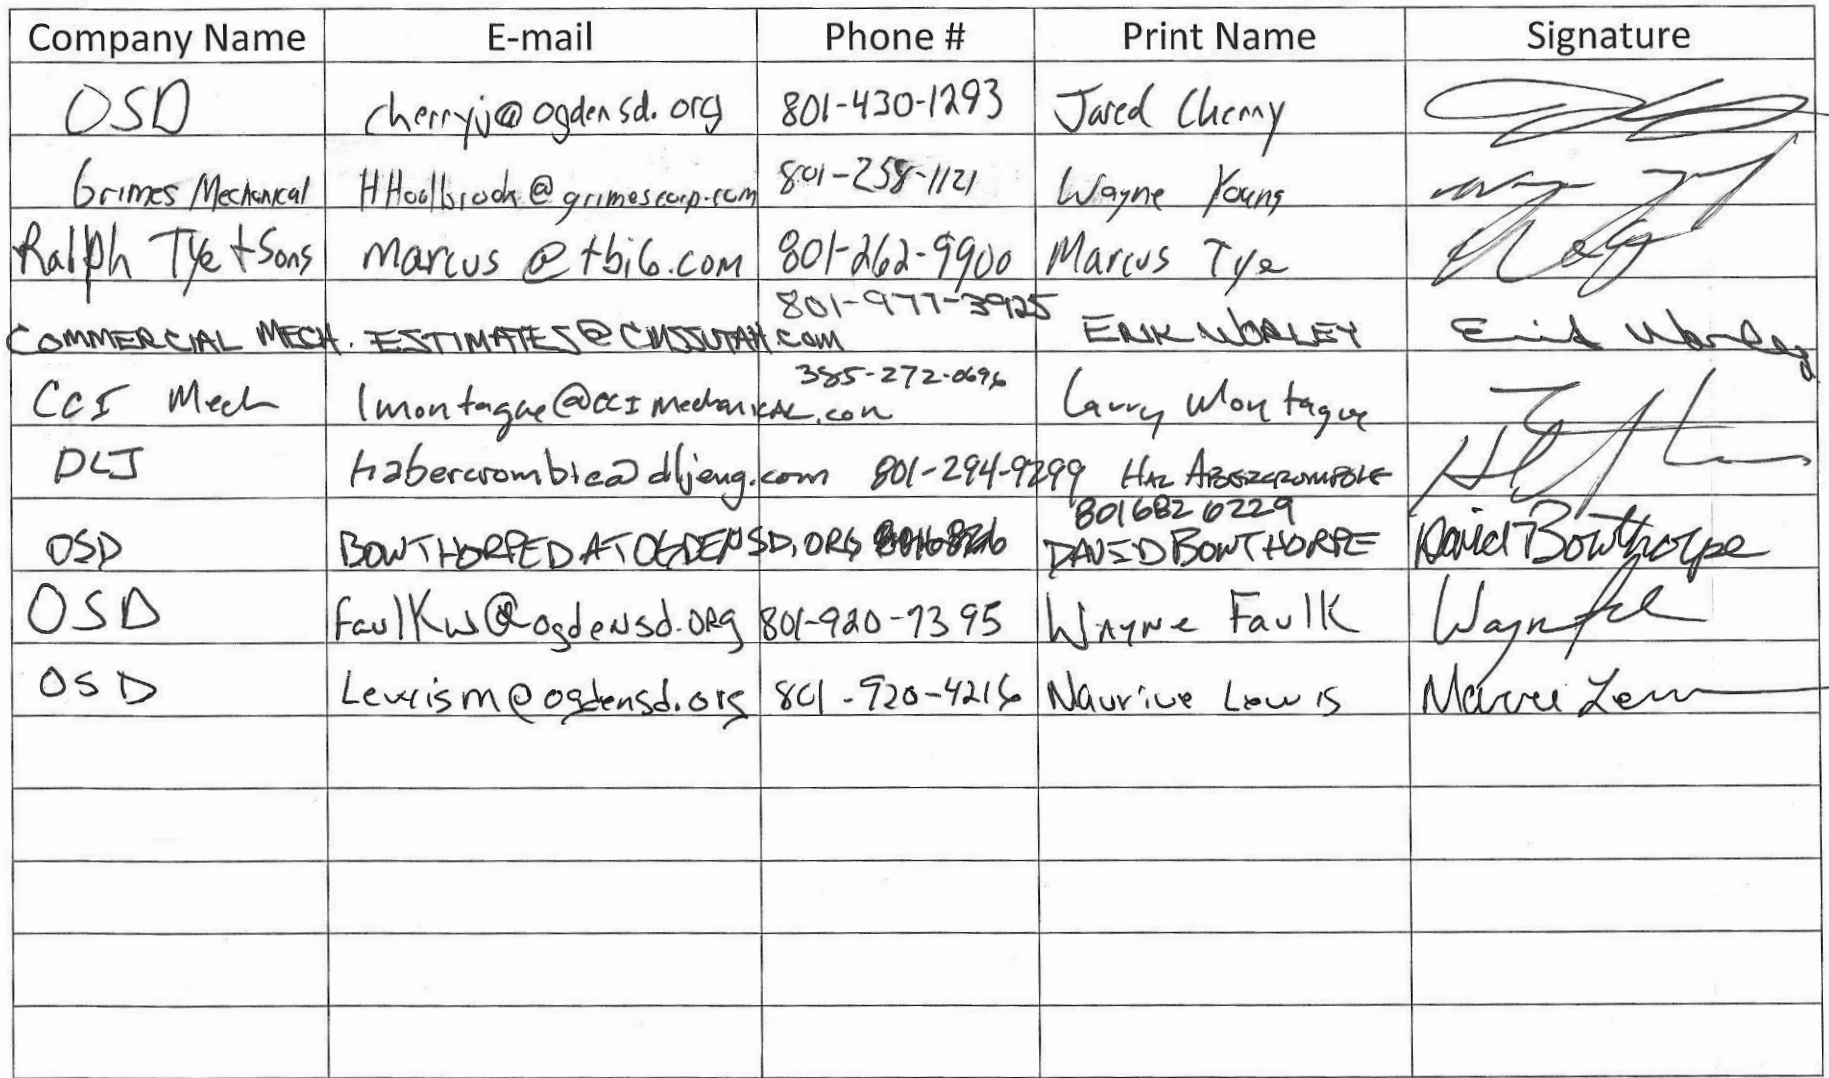 Company Name E-mail Phone # Print Name Signature
OSD cherryj@ogdensd.org 801-430-1293 Jared Cherry
Grimes Mechanical HHoolbrook@grimescorp.com 801-258-1121 Wayne Young
Ralph Tye + Sons marcus@tbi6.com 801-262-9900 Marcus Tye
COMMERCIAL MECH. ESTIMATES@CMSSUTAH.com 801-977-3925 ERIK WORLEY Erik Worley
CCI Mech lmontague@CCImechanical.com 385-272-0696 Larry Montague
DLJ habercrombie@dljeng.com 801-294-9299 HAL ABERCROMBIE
OSD BOWTHORPEDATOGDENSD.ORG DAVID BOWTHORPE 8016826229 David Bowthorpe
OSD FaulKw@ogdensd.ORg 801-920-7395 Wayne Faulk
OSD Lewrism@ogdensd.org 801-920-4216 Maurice Lewis